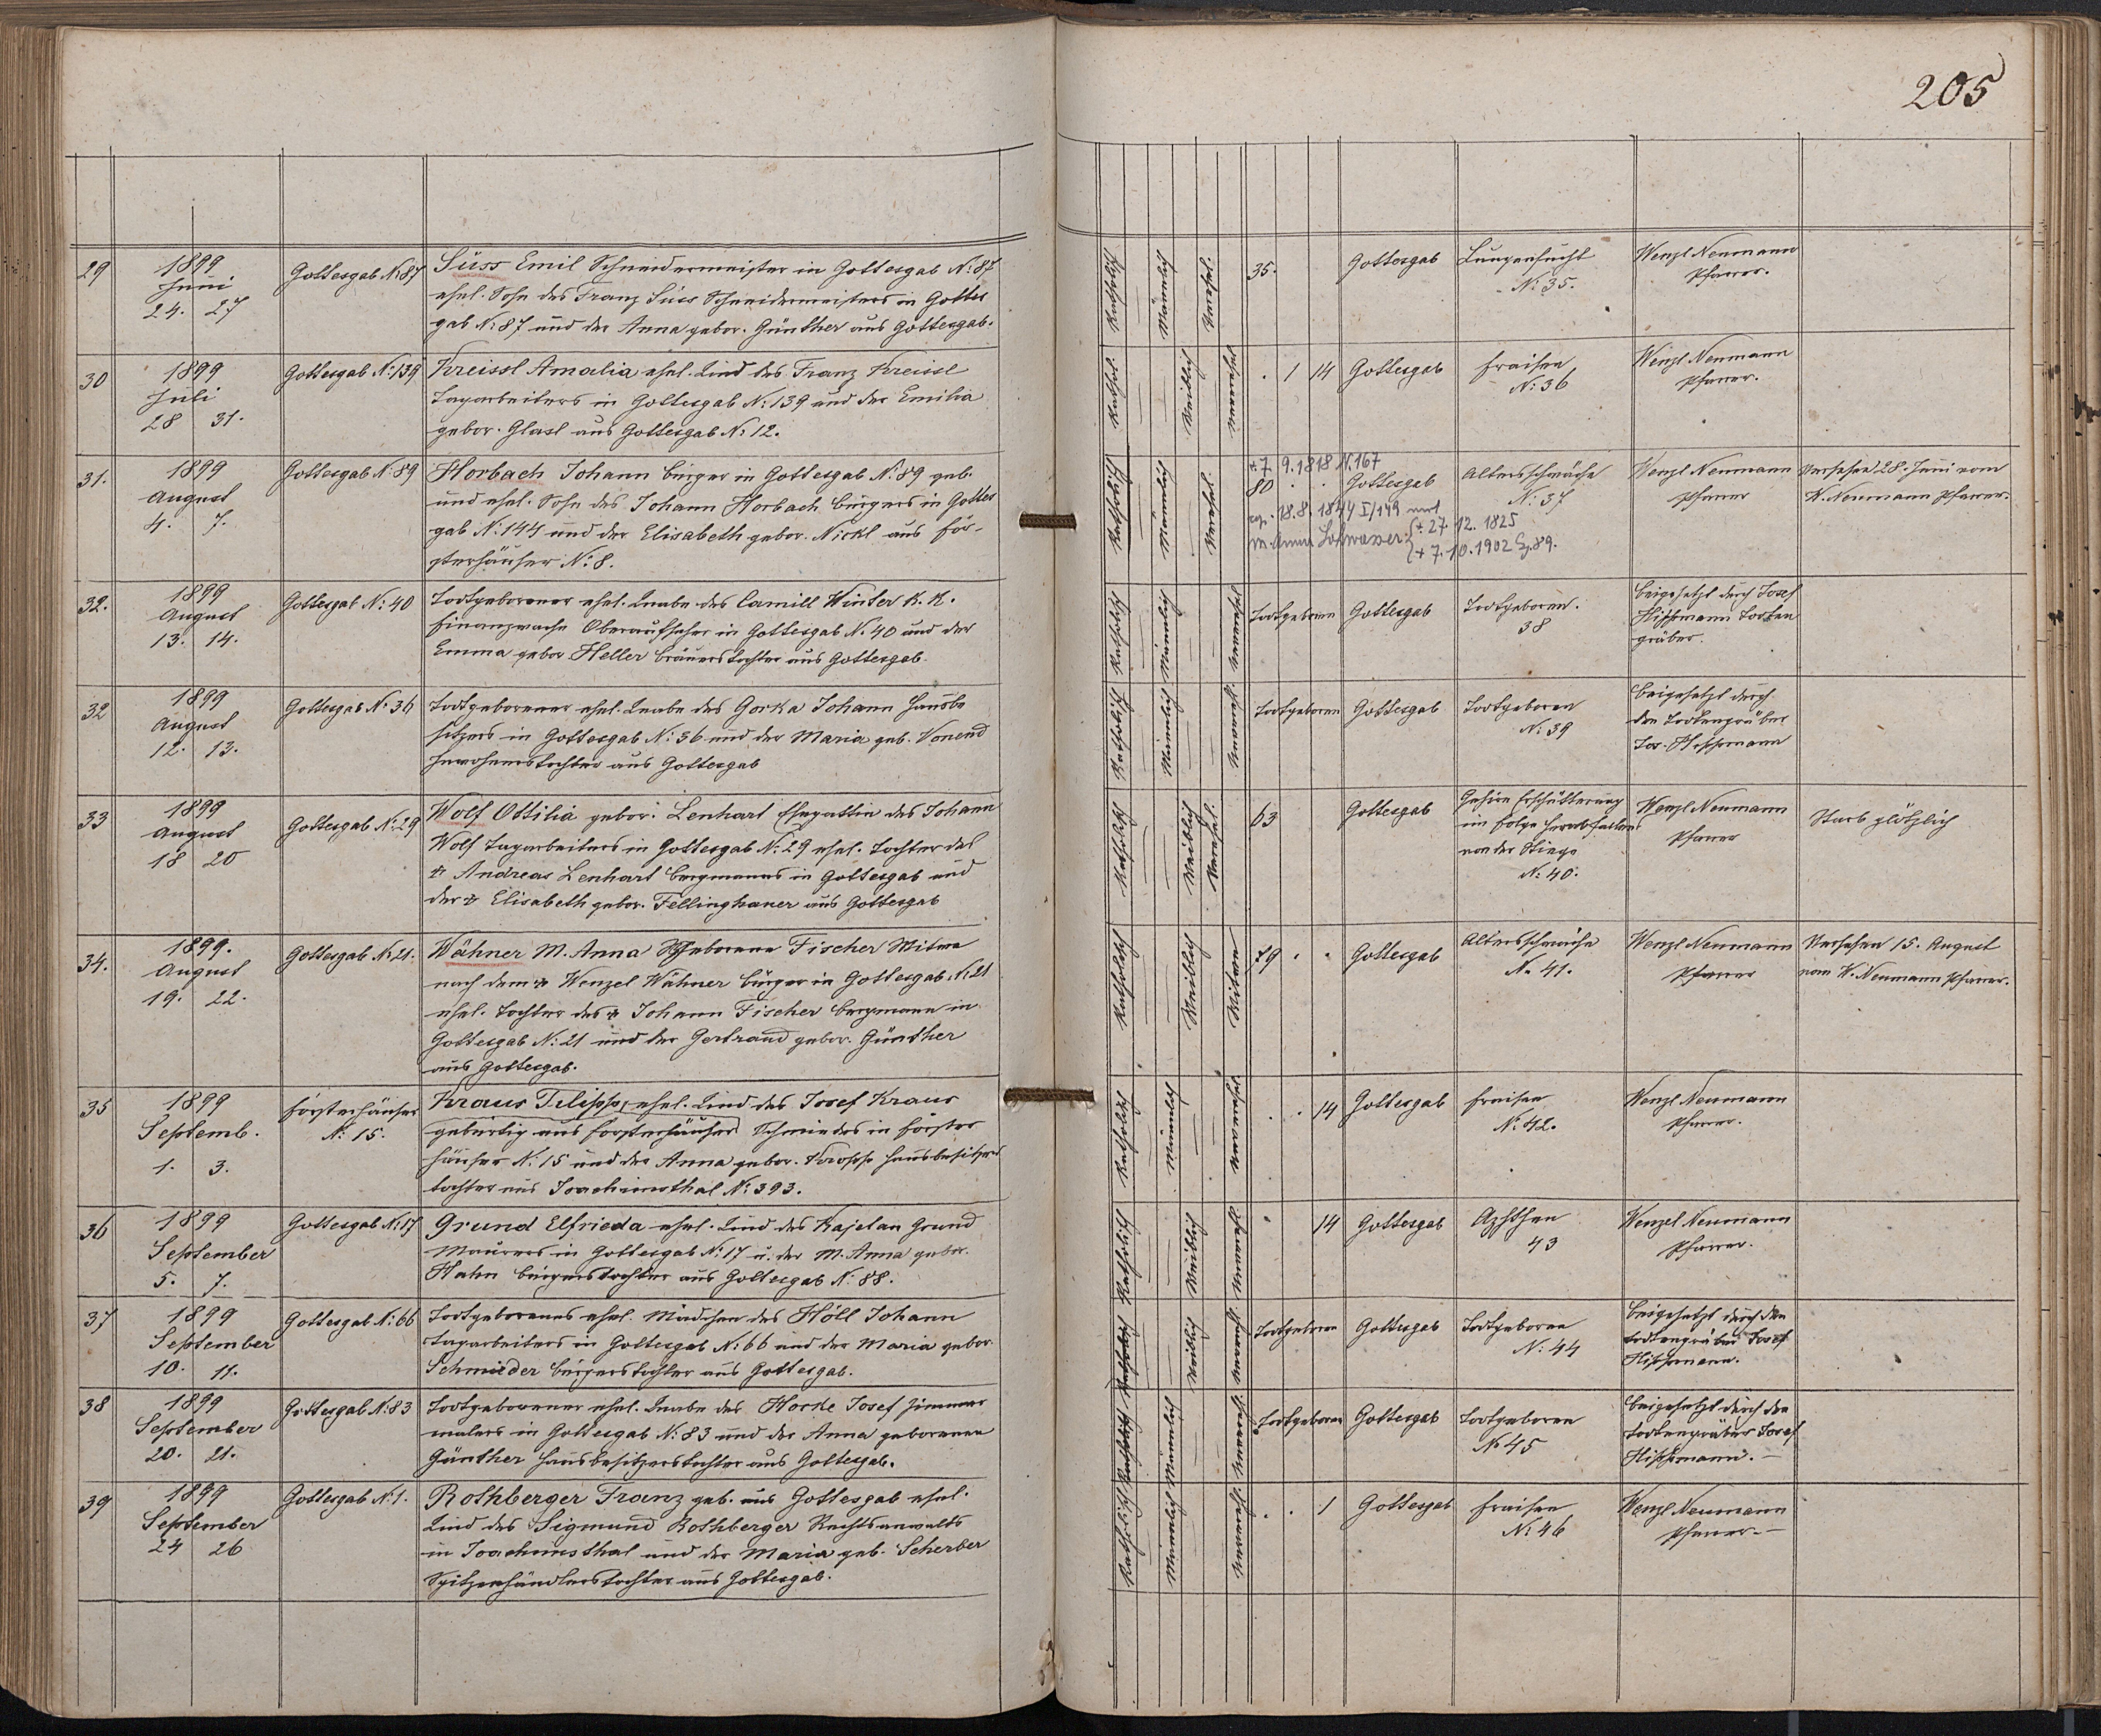 205
29
1899
Juni
24. 27
Gottesgab N: 87
Süss Emil Schneidermeister in Gottesgab N: 87
ehel. Sohn des Franz Süss Schneidermeisters in Gottes
gab N: 87 und der Anna gebor. Günther aus Gottesgab.
Katholisch
Männlich
Verehel.
35.
Gottesgab
Lungensucht
N: 35.
Wenzl Neumann
Pfarrer.
30
1899
Juli
28 31.
Gottesgab N: 139
Kreissl Amalia ehel. Kind des Franz Kreissl
Tagarbeiters in Gottesgab N: 139 und der Emilia
gebor. Glasl aus Gottesgab N: 12.
Kathol.
Weiblich
unverehel
. 1 14
Gottesgab
Fraisen
N: 36
Wenzl Neumann
Pfarrer.
31.
1899
August
4. 7.
Gottesgab N: 89
Horbach Johann Bürger in Gottesgab N: 89 geb.
und ehel. Sohn des Johann Horbach Bürgers in Gottes
gab N: 144 und der Elisabeth gebor. Nickl aus För-
sterhäuser N: 8.
Katholisch
Männlich
Verehel.
*7. 9. 1818 N. 167
80 . .
Gottesgab
cop. 18. 8. 1844 I/149 mit
M. Anna Lohwasser {* 27. 12. 1825
{+ 7. 10. 1902 Gg. 89.
Altersschwäche
N: 37
Wenzl Neumann
Pfarrer
Versehen 28. Juni vom
W. Neumann Pfarrer.
32.
1899
August
13. 14.
Gottesgab N: 40
Todtgeborener ehel. Knabe des Camill Winter K. K.
Finanzwache Oberaufseher in Gottesgab N: 40 und der
Emma gebor Heller Bräuerstochter aus Gottesgab.
Katholisch
Männlich
unverehel
Todtgeboren
Gottesgab
Todtgeboren.
38
beigesetzt durch Josef
Hippmann Todten
gräber.
32
1899
August
12. 13.
Gottesgab N: 36
Todtgeborener ehel. Knabe des Gorka Johann Hausbe
sitzers in Gottesgab N: 36 und der Maria geb. Vonend
Inwohnerstochter aus Gottesgab
Katholisch
Männlich
unverehl.
Todtgeboren
Gottesgab
Todtgeboren
N: 39
beigesetzt durch
den Todtengräber
Jos. Hippmann
33
1899
August
18 20
Gottesgab N: 29
Wolf Ottilia gebor. Lenhart Ehegattin des Johann
Wolf Tagarbeiters in Gottesgab N: 29 ehel. Tochter des
+ Andreas Lenhart Bergmanns in Gottesgab und
der + Elisabeth gebor. Fellinghauer aus Gottesgab
Katholisch
Weiblich
Verehel.
63
Gottesgab
Gehirn Erschütterung
in Folge Herabfallens
von der Stiege
N: 40.
Wenzl Neumann
Pfarrer
Starb plötzlich
34.
1899.
August
19. 22.
Gottesgab N: 21.
Wähner M. Anna geborene Fischer Witwe
nach dem + Wenzel Wähner Bürger in Gottesgab N: 21
ehel. Tochter des + Johann Fischer Bergmann in
Gottesgab N: 21 und der Gertraud gebor. Günther
aus Gottesgab.
Katholisch
Weiblich
Witwe
79 . .
Gottesgab
Altersschwäche
N: 41.
Wenzl Neumann
Pfarrer
Versehen 15. August
vom W. Neumann Pfarrer.
35
1899
Septemb.
1. 3.
Försterhäuser
N: 15.
Kraus Filipp, ehel. Kind des Josef Kraus
gebürtig aus Försterhäuser Schmiedes in Förster
häuser N: 15 und der Anna gebor. Kropp Hausbesitzers
tochter aus Joachimsthal N: 393.
Katholisch
Männlich
unverehel.
. . 14
Gottesgab
Fraisen
N: 42.
Wenzl Neumann
Pfarrer.
36
1899
September
5. 7.
Gottesgab N: 17
Grund Elfrieda ehel. Kind des Kajetan Grund
Maurers in Gottesgab N: 17 u. der M. Anna gebor.
Hahn Bürgerstochter aus Gottesgab N: 88.
Katholisch
Weiblich
unverehl.
14
Gottesgab
43
Wenzel Neumann
Pfarrer.
37
1899
September
10. 11.
Gottesgab N: 66
Todtgeborenes ehel. Mädchen des Höll Johann
Tagarbeiters in Gottesgab N: 66 und der Maria gebor.
Schmieder Bürgerstochter aus Gottesgab.
Katholisch
Weiblich
unverehl.
Todtgeboren
Gottesgab
Todtgeboren
N: 44
beigesetzt durch den
Todtengräber Josef
Hippmann.
38
1899
September
20. 21.
Gottesgab N: 83
Todtgeborener ehel. Knabe des Horke Josef Zimmer
malers in Gottesgab N: 83 und der Anna geborenen
Günther Hausbesitzerstochter aus Gottesgab.
Katholisch
Männlich
unverehl.
Todtgeboren
Gottesgab
Todtgeboren
No 45
beigesetzt durch den
Todtengräber Josef
Hippmann. —
39
1899
September
24 26
Gottesgab N: 1.
Rothberger Franz geb. aus Gottesgab ehel.
Kind des Sigmund Rothberger Rechtsanwalts
in Joachimsthal und der Maria geb. Scherber
Spitzenhändlerstochter aus Gottesgab.
Katholisch
Männlich
unverehl.
. . 1
Gottesgab
Fraisen
N: 46
Wenzl Neumann
Pfarrer. —